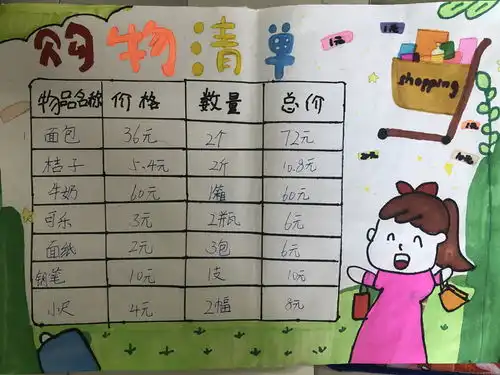 购物清单
1元
1元
shopping
物品名称 价格 数量 总价
面包 36元 2个 72元
桔子 5.4元 2斤 10.8元
牛奶 60元 1箱 60元
可乐 3元 2瓶 6元
面纸 2元 3包 6元
钢笔 10元 1支 10元
小尺 4元 2幅 8元